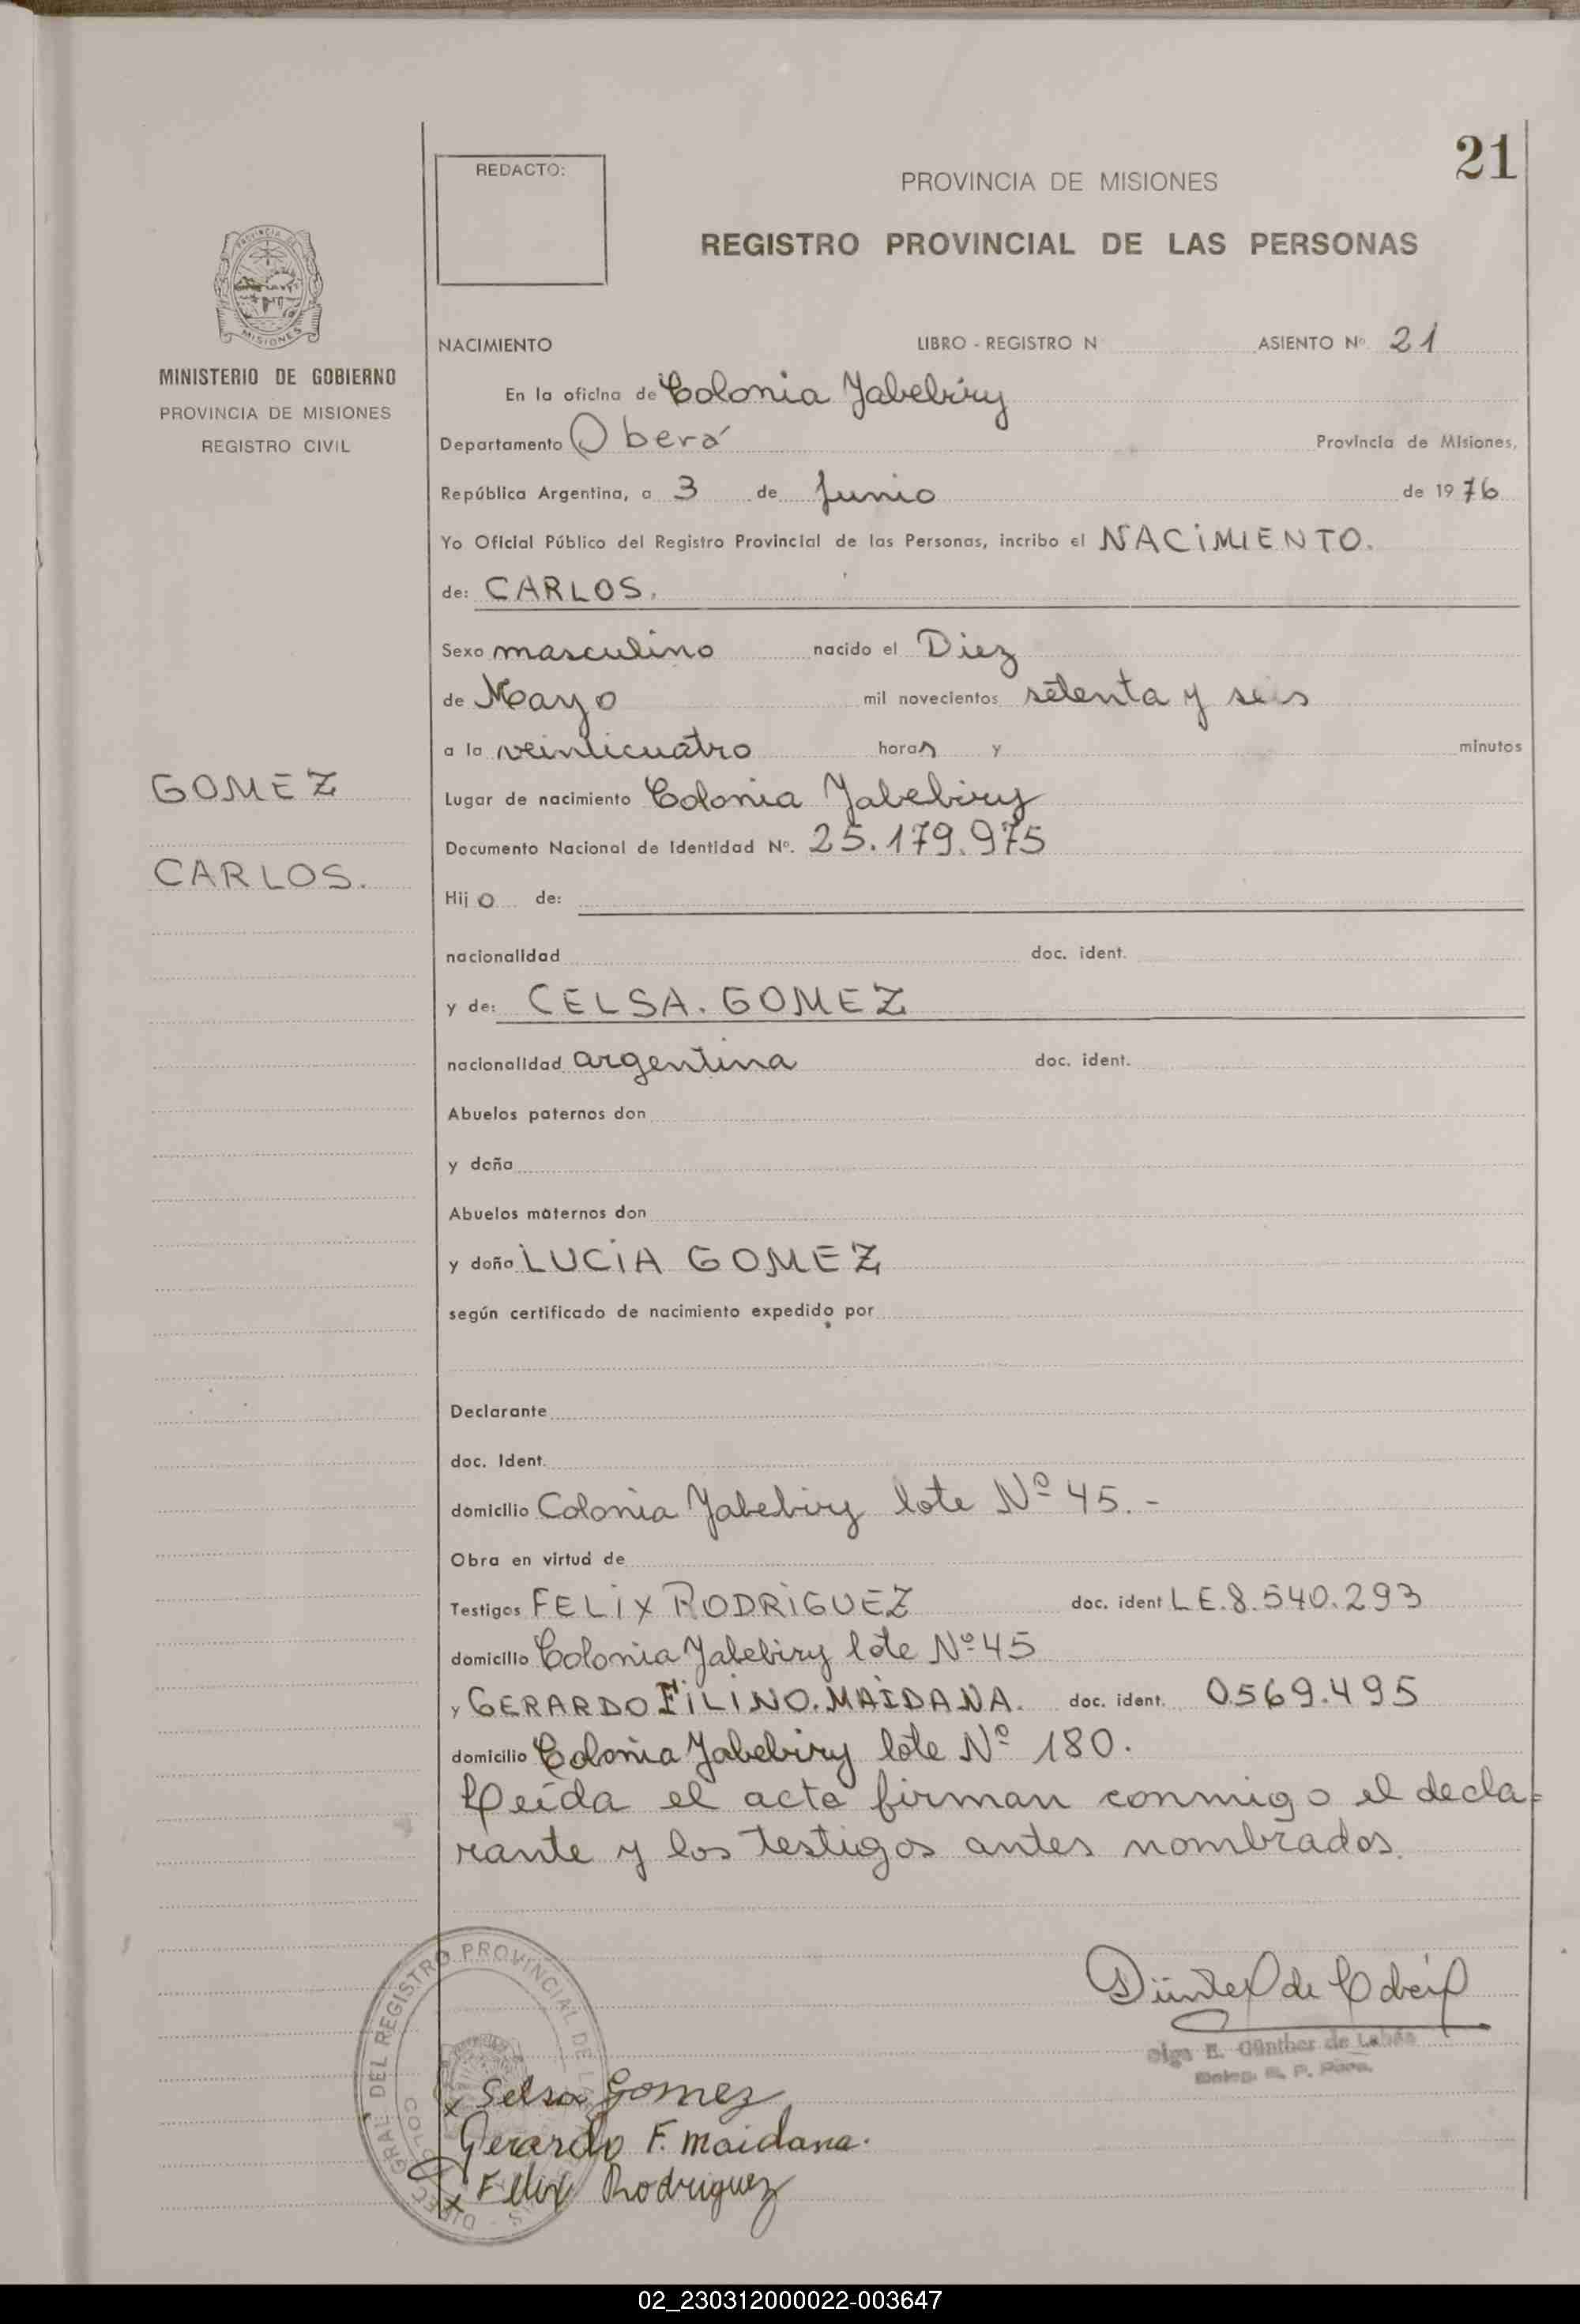 21
REDACTO:
PROVINCIA DE MISIONES
REGISTRO PROVINCIAL DE LAS PERSONAS
PROVINCIA DE
MISIONES
MINISTERIO DE GOBIERNO
PROVINCIA DE MISIONES
REGISTRO CIVIL
NACIMIENTO LIBRO - REGISTRO N ASIENTO Nº 21
En la oficina de Colonia Yabebiry
Departamento Oberá Provincia de Misiones,
República Argentina, a 3 de Junio de 1976
Yo Oficial Público del Registro Provincial de las Personas, incribo el NACIMIENTO.
de: CARLOS.
Sexo masculino nacido el Diez
de Mayo mil novecientos setenta y seis
a la veinticuatro horas y minutos
GOMEZ
CARLOS.
Lugar de nacimiento Colonia Yabebiry
Documento Nacional de Identidad Nº. 25.179.975
Hijo de:
nacionalidad doc. ident.
y de: CELSA. GOMEZ
nacionalidad argentina doc. ident.
Abuelos paternos don
y doña
Abuelos maternos don
y doña LUCIA GOMEZ
según certificado de nacimiento expedido por
Declarante
doc. Ident.
domicilio Colonia Yabebiry lote Nº 45.-
Obra en virtud de
Testigos FELIX RODRIGUEZ doc. ident LE.8.540.293
domicilio Colonia Yabebiry lote Nº 45
y GERARDO FILINO. MAIDANA. doc. ident. 0.569.495
domicilio Colonia Yabebiry lote Nº 180.
Leída el acta firman conmigo el decla=
rante y los testigos antes nombrados.
DIREC. GRAL. DEL REGISTRO PROVINCIAL DE LAS
Olga E. Günther de
Selsa Gomez
Gerardo F. Maidana.
Felix Rodriguez
02_230312000022-003647